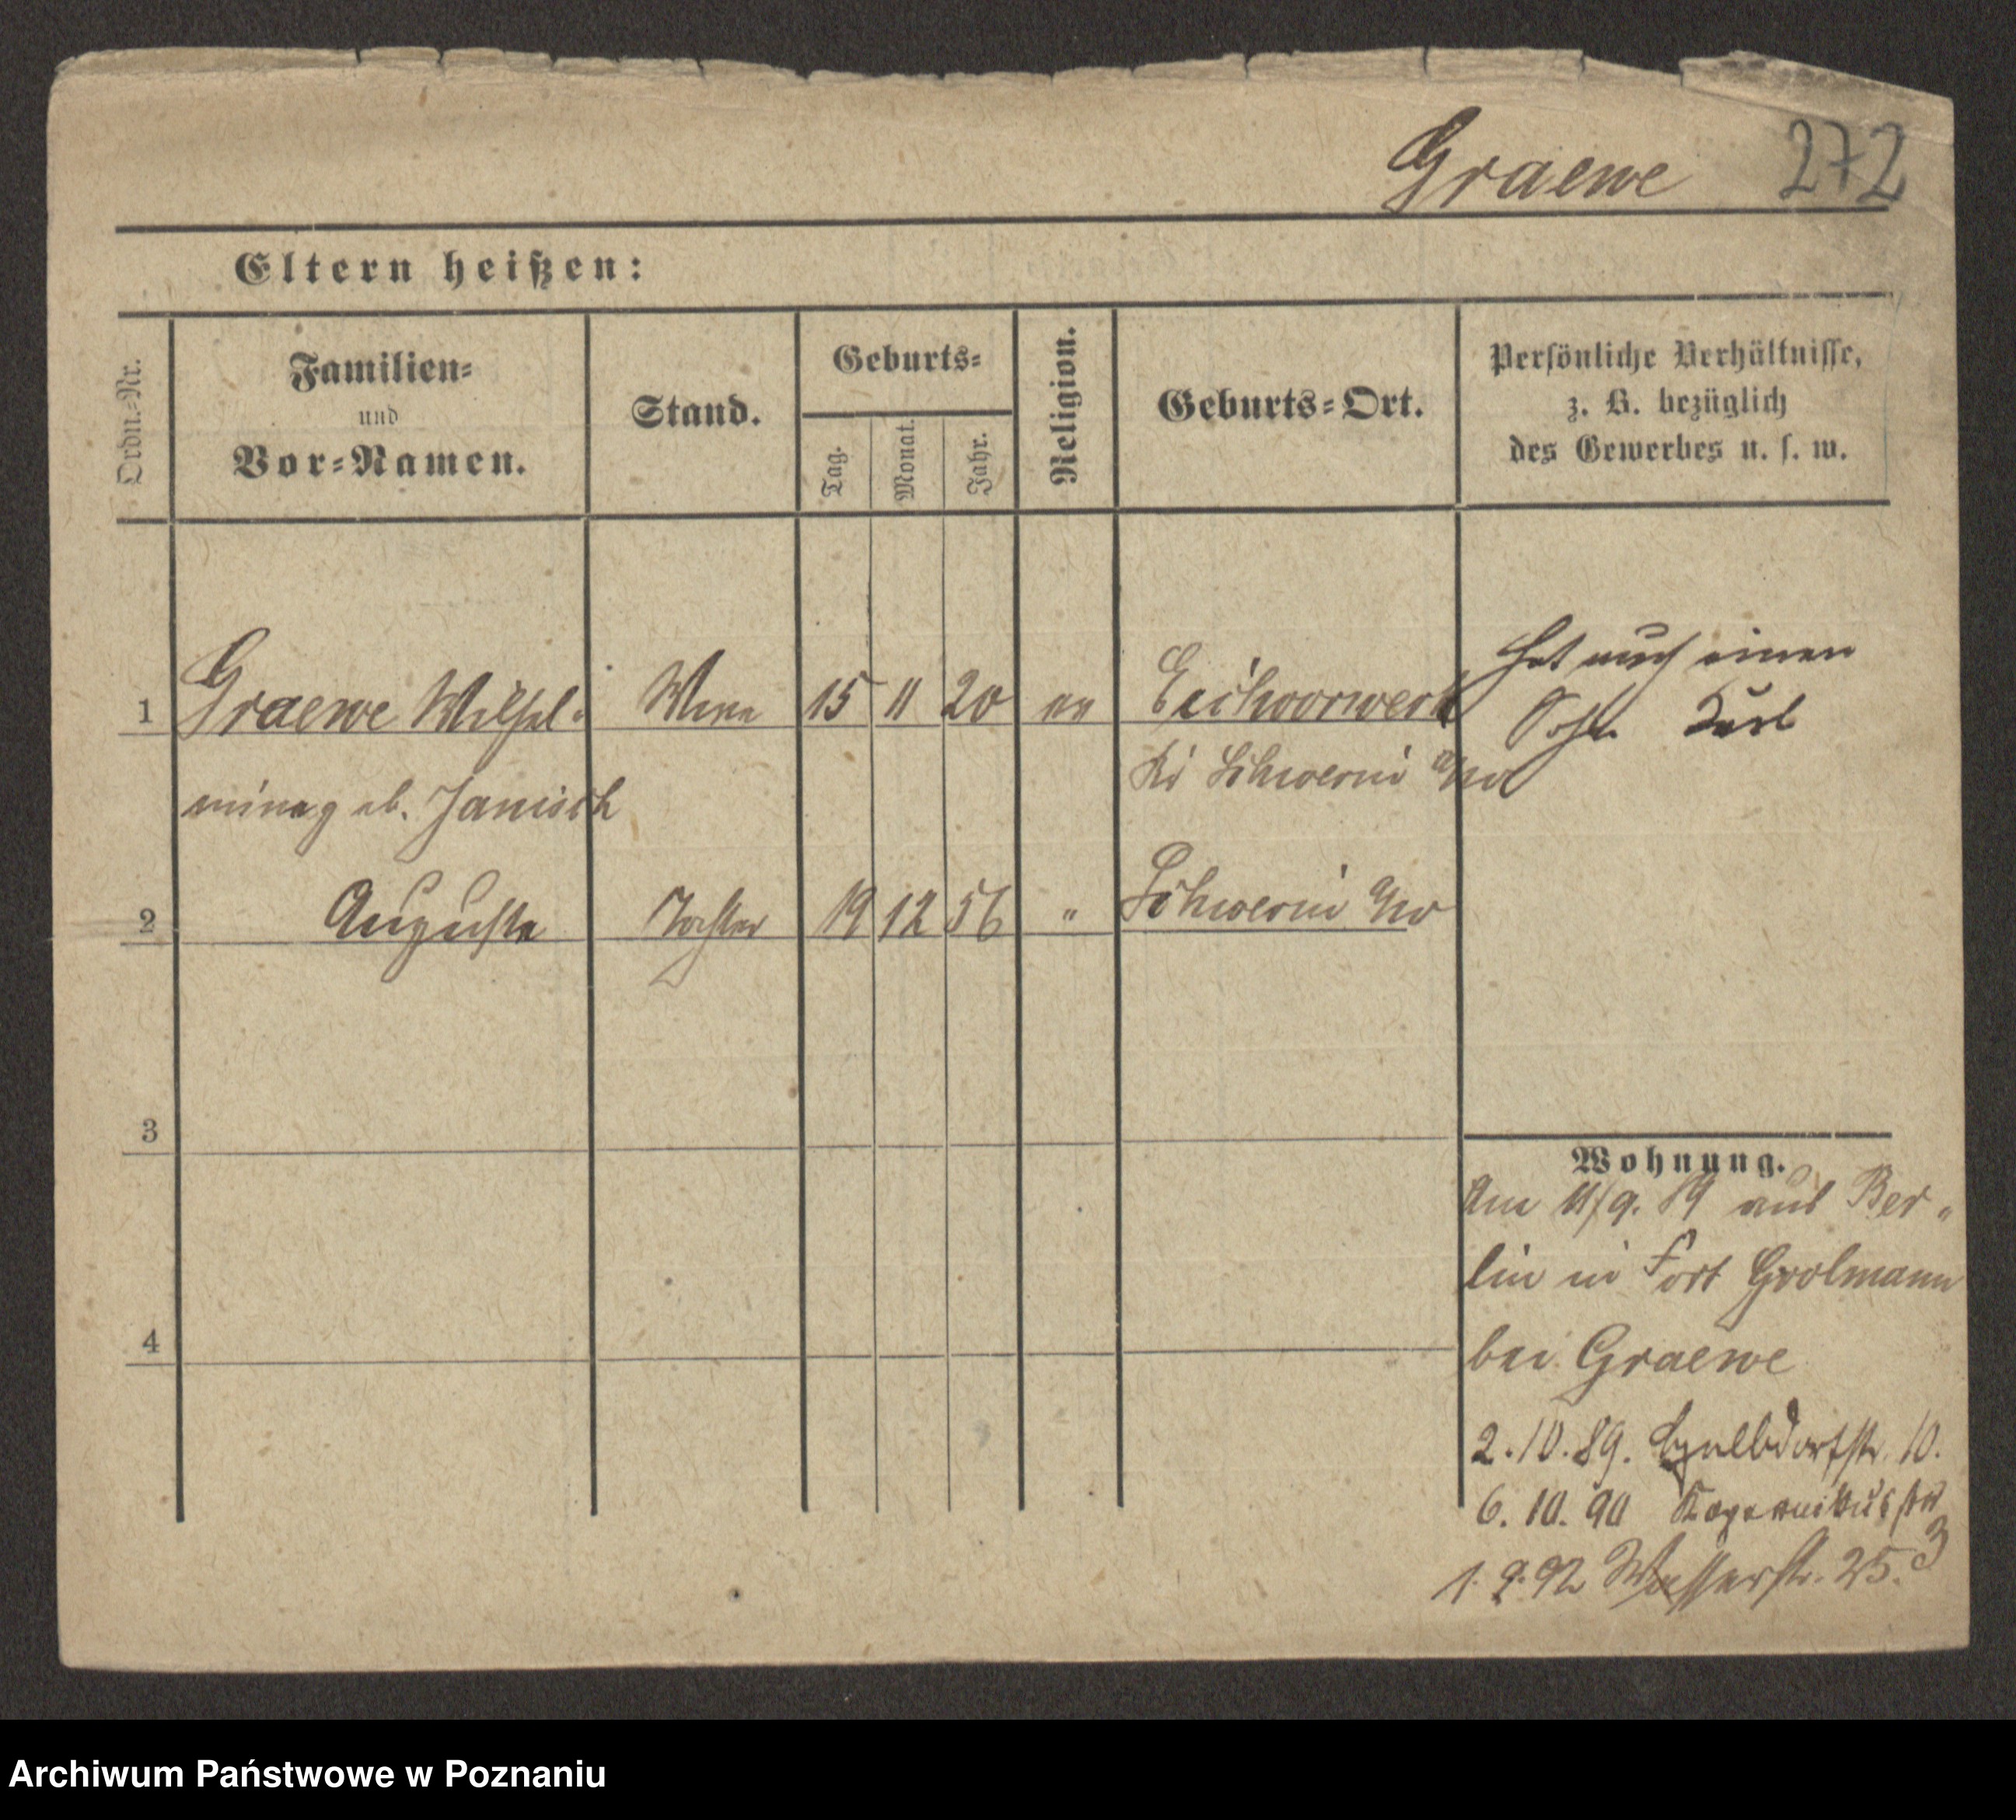 Graewe 272
Eltern heißen:
Ordn.-Nr.
Familien-
und
Vor-Namen.
Stand.
Geburts-
Tag.
Monat.
Jahr.
Religion.
Geburts-Ort.
Persönliche Verhältnisse,
z. B. bezüglich
des Gewerbes u. s. w.
1 Graewe Wilhel- 15 11 20 ev Eichvorwerk
mine geb. Janisch Kr Schwerin a/W
Hat noch einen
Sohn Karl
2 Auguste Tochter 19 12 56 " Schwerin a/W
3
4
Wohnung.
Am 11/9. 89 aus Ber-
lin in Fort Grolmann
bei Graewe
2.10.89. 10.
6. 10. 90 Kopernikusstr
3
1. 9. 92 Wasserstr. 25.
Archiwum Państwowe w Poznaniu